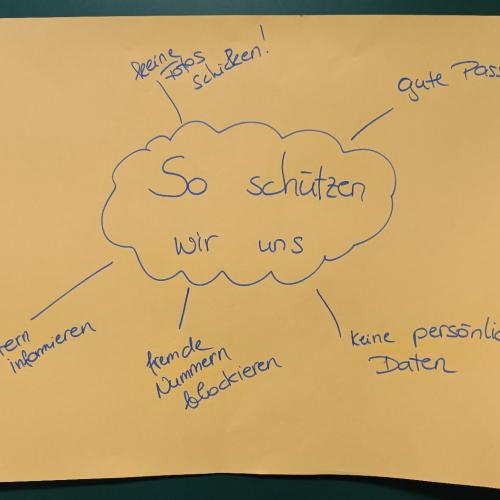 keine
Fotos
schicken!
gute Pass
So schützen
wir uns
informieren
fremde
Nummern
blockieren
keine persönlic
Daten